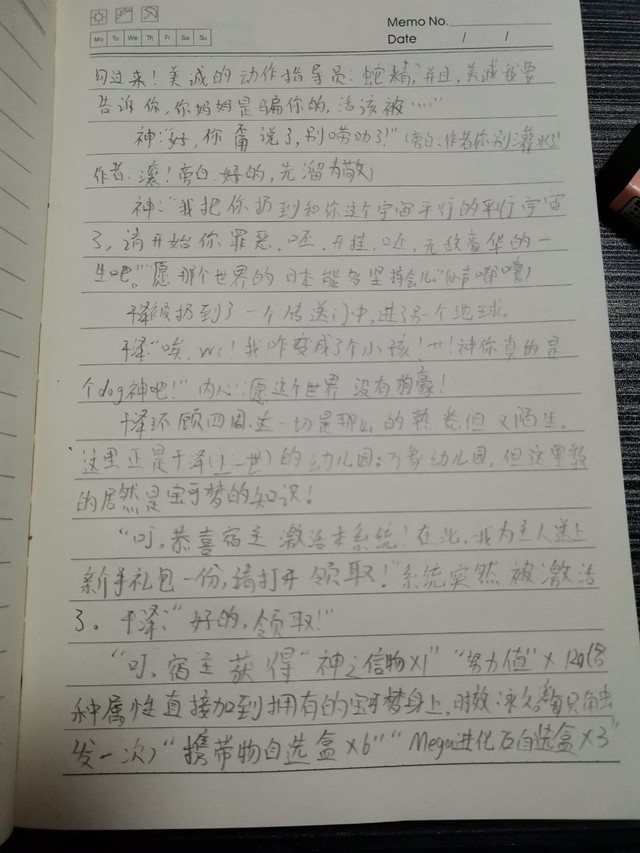 Memo No.
Mo Tu We Th Fr Sa Su
Date / /
回过来！美诚的动作指导员：蛇精，并且，美诚我要
告诉你，你妈妈是骗你的，活该被……"
神："好，你甭说了，别唠叨了！"（旁白：作者你别灌水了！
作者：滚！旁白：好的，先溜为敬）
神："我把你扔到和你这个宇宙平行的平行宇宙
了，请开始你罪恶，呸，开挂，呸，无敌豪华的一
生吧。"愿那个世界的日本能多坚持会儿。"（小声嘟囔）
干泽被扔到了一个传送门中，进了另一个地球。
干泽："唉，wc！我咋变成了个小孩！艹！神你真的是
个dog神吧！"内心：愿这个世界没有狗豪！
干泽环顾四周，这一切是那么的熟悉但又陌生。
这里正是干泽（上一世）的幼儿园：万象幼儿园。但这里教
的居然是宝可梦的知识！
"叮，恭喜宿主激活本系统！在此，我为主人送上
新手礼包一份，请打开领取！"系统突然被激活
了。干泽："好的，领取！"
"叮，宿主获得"神之信物×1""努力值"×
种属性直接加到拥有的宝可梦身上，时效：永久，每只触
发一次）"携带物自选盒×6""Mega进化石自选盒×3"